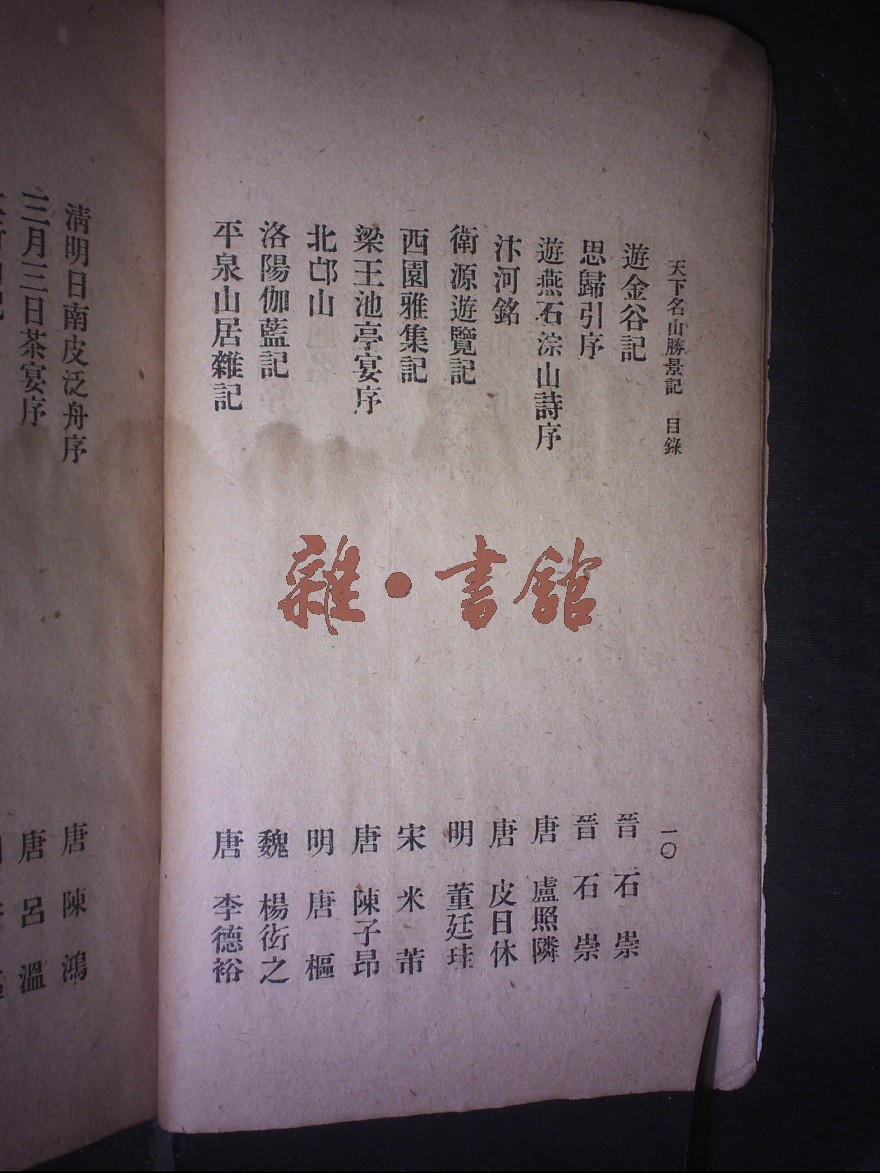 天下名山勝景記 目錄 一〇
遊金谷記 晉 石崇
思歸引序 晉 石崇
遊燕石淙山詩序 唐 盧照隣
汴河銘 唐 皮日休
衛源遊覽記 明 董廷珪
西園雅集記 宋 米芾
梁王池亭宴序 唐 陳子昂
北邙山 明 唐樞
洛陽伽藍記 魏 楊衒之
平泉山居雜記 唐 李德裕
清明日南皮泛舟序 唐 陳鴻
三月三日茶宴序 唐 呂溫
雜·書館